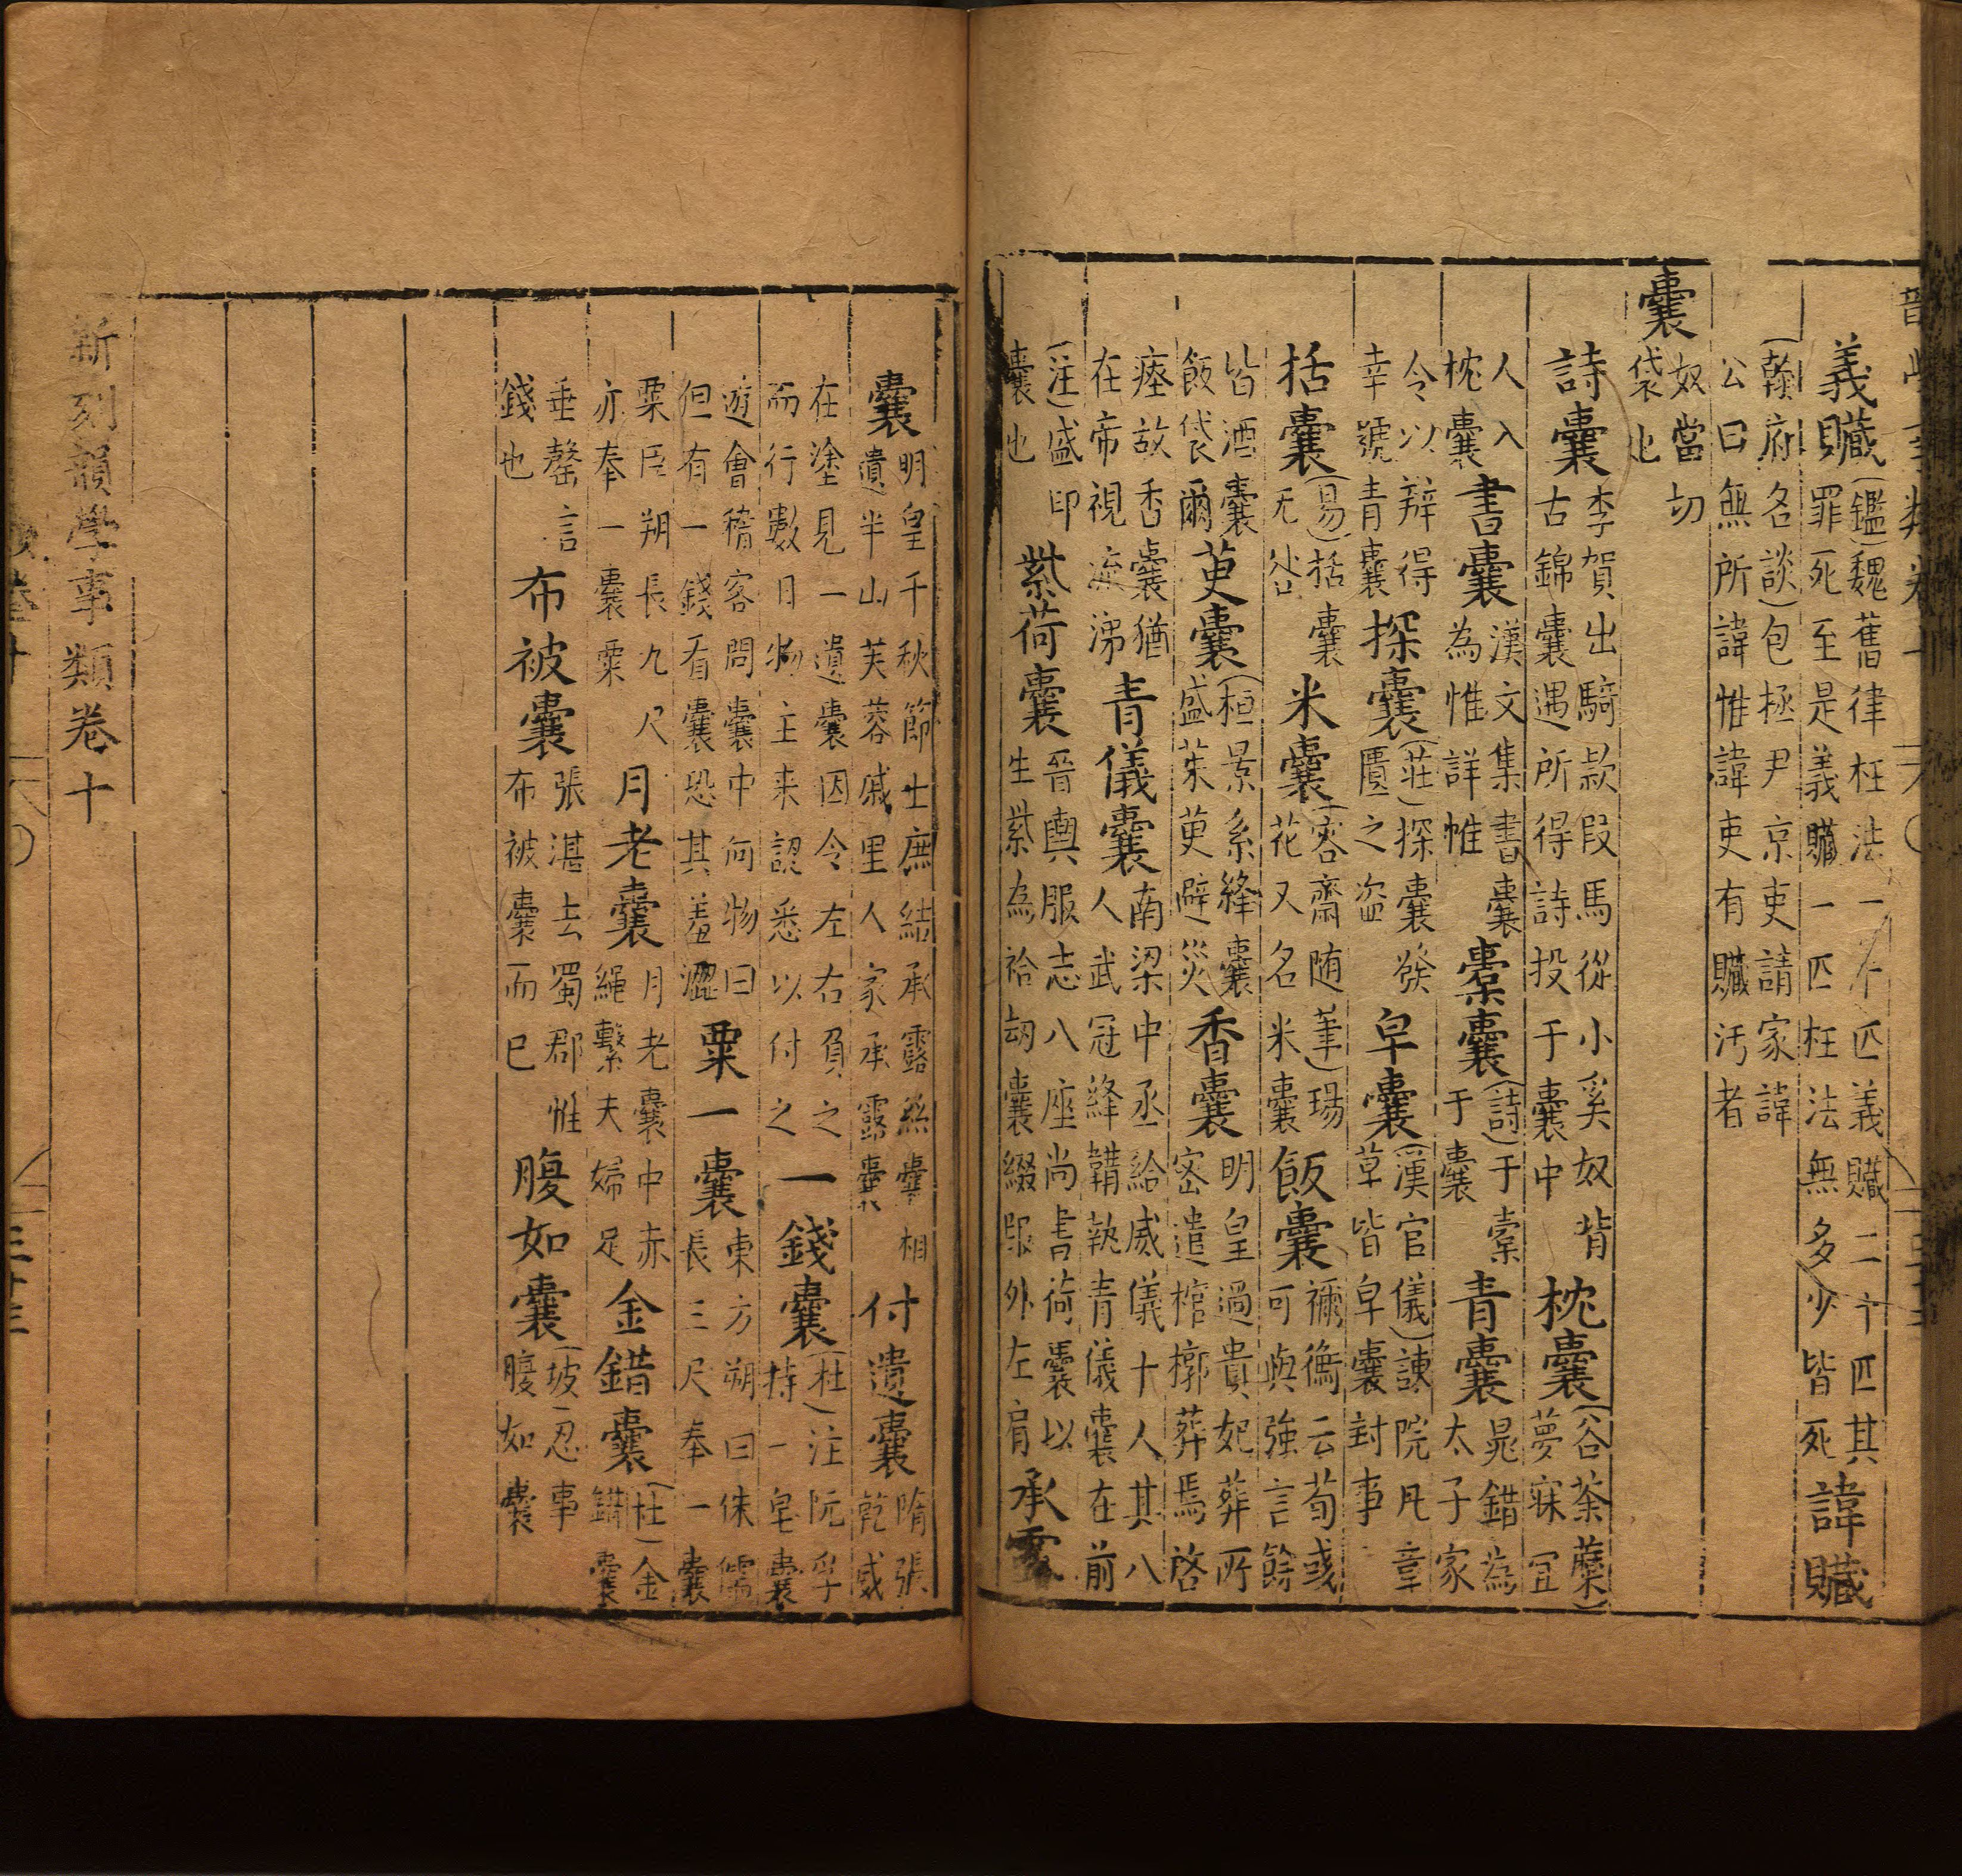 義贓(鑑)魏舊律枉法一十匹義贓二十匹其罪死至是義贓一匹枉法無多少皆死 諱贓
(翰府名談)包拯尹京吏請家諱公曰無所諱惟諱吏有贓污者
囊 奴當切袋也
詩囊 李賀出騎款段馬從小奚奴背古錦囊遇所得詩投于囊中 枕囊(谷茶蘪)夢寐宜
人入枕囊 書囊 漢文集書囊為惟詳帷 橐囊(詩)于橐于囊 青囊 晁錯為太子家
令以辯得幸號青囊 探囊(莊)探囊發匱之盜 皁囊(漢官儀)諫院凡章草皆皁囊封事
括囊(易)括囊无咎 米囊(容齋随筆)瑒花又名米囊 飯囊 禰衡云荀彧可與強言餘
皆酒囊飯袋爾 萸囊(桓景系絳囊盛茱萸避災 香囊 明皇過貴妃葬所密遣棺槨葬焉啓
瘞故香囊猶在帝視流涕 青儀囊 南梁中丞給威儀十人其八人武冠絳韝執青儀囊在前
(注)盛印囊也 紫荷囊 晉輿服志八座尚書荷囊以生紫為袷囊綴服外左肩 承露
囊 明皇千秋節士庶結承露絲囊相遺半山芙蓉戚里人家承露囊 付遺囊 隋張乾威
在塗見一遺囊因令左右負之而行數日物主来認悉以付之 一錢囊(杜)注阮孚持一皂囊
遊會稽客問囊中何物曰但有一錢看囊恐其羞澀 粟一囊 東方朔曰侏儒長三尺奉一囊
粟臣朔長九尺亦奉一囊粟 月老囊 月老囊中赤繩繫夫婦足 金錯囊(杜)金錯囊
垂罄言錢也 布被囊 張湛去蜀郡惟布被囊而已 腹如囊(坡)忍事腹如囊
新刻韻學事類卷十